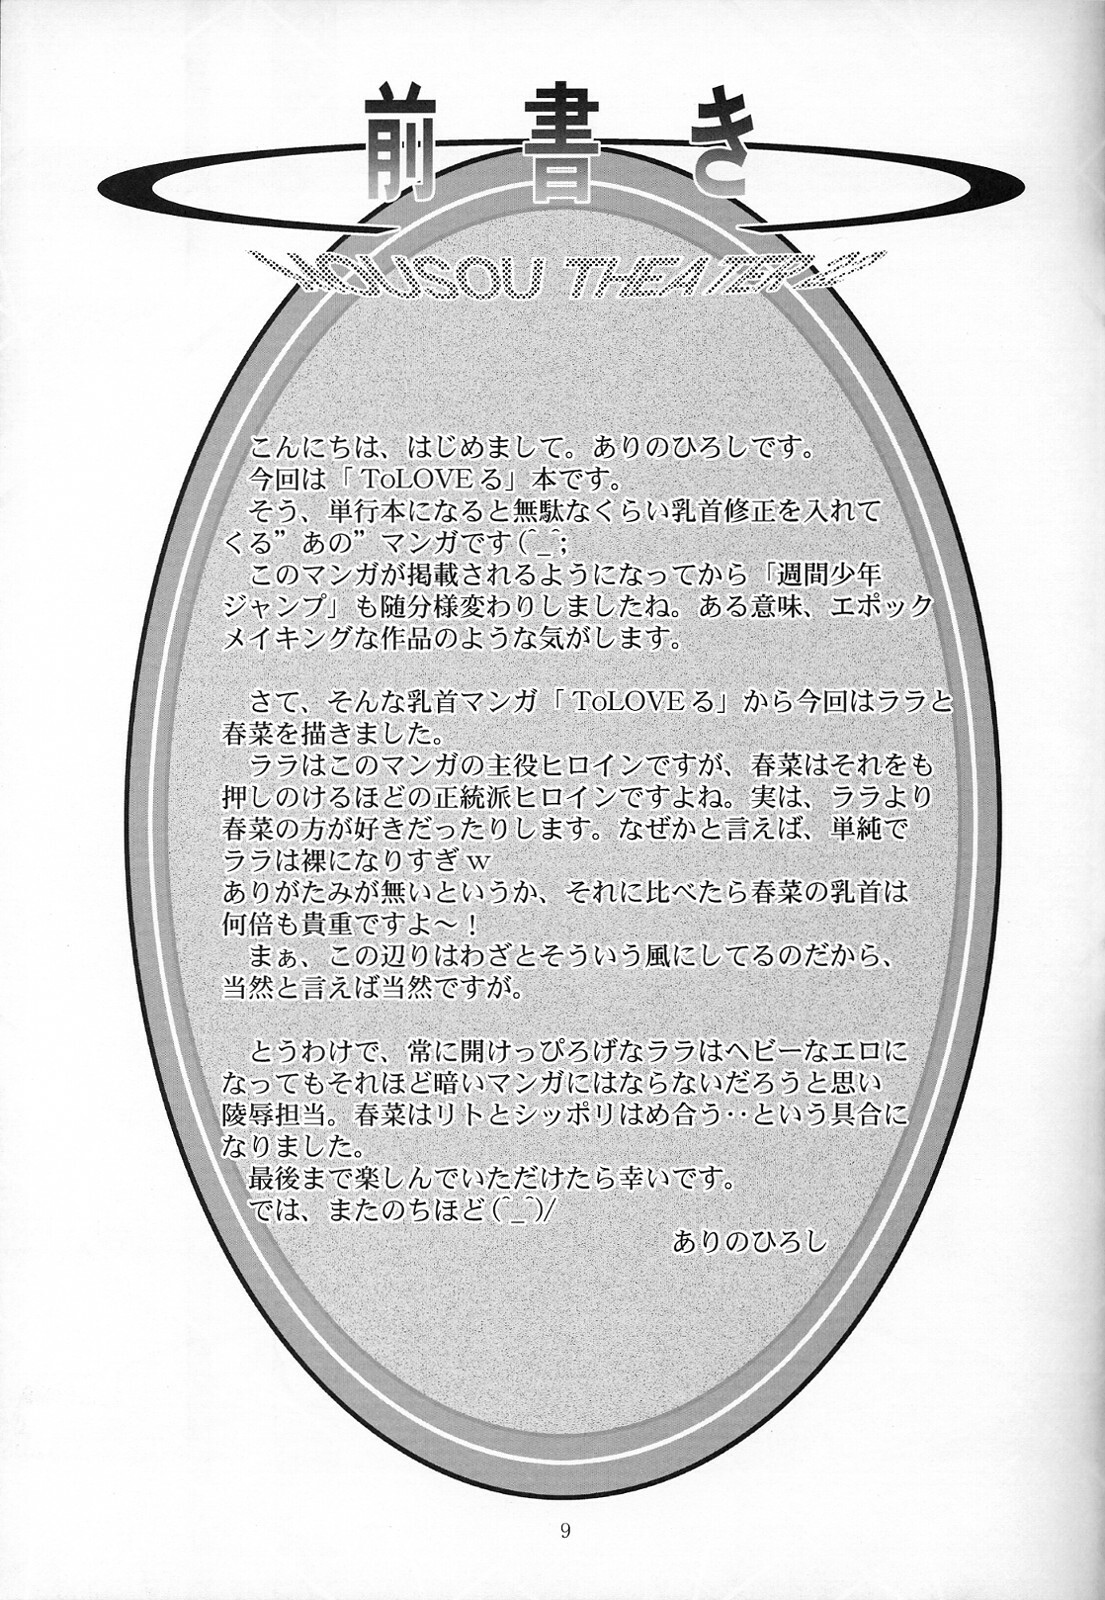 前書き
MOUSOU THEATER
こんにちは、はじめまして。ありのひろしです。
今回は「ToLOVEる」本です。
そう、単行本になると無駄なくらい乳首修正を入れて
くる”あの”マンガです(^_^;
このマンガが掲載されるようになってから「週間少年
ジャンプ」も随分様変わりしましたね。ある意味、エポック
メイキングな作品のような気がします。
さて、そんな乳首マンガ「ToLOVEる」から今回はララと
春菜を描きました。
ララはこのマンガの主役ヒロインですが、春菜はそれをも
押しのけるほどの正統派ヒロインですよね。実は、ララより
春菜の方が好きだったりします。なぜかと言えば、単純で
ララは裸になりすぎw
ありがたみが無いというか、それに比べたら春菜の乳首は
何倍も貴重ですよ～！
まぁ、この辺りはわざとそういう風にしてるのだから、
当然と言えば当然ですが。
とうわけで、常に開けっぴろげなララはヘビーなエロに
なってもそれほど暗いマンガにはならないだろうと思い
陵辱担当。春菜はリトとシッポリはめ合う‥という具合に
なりました。
最後まで楽しんでいただけたら幸いです。
では、またのちほど(^_^)/
ありのひろし
9